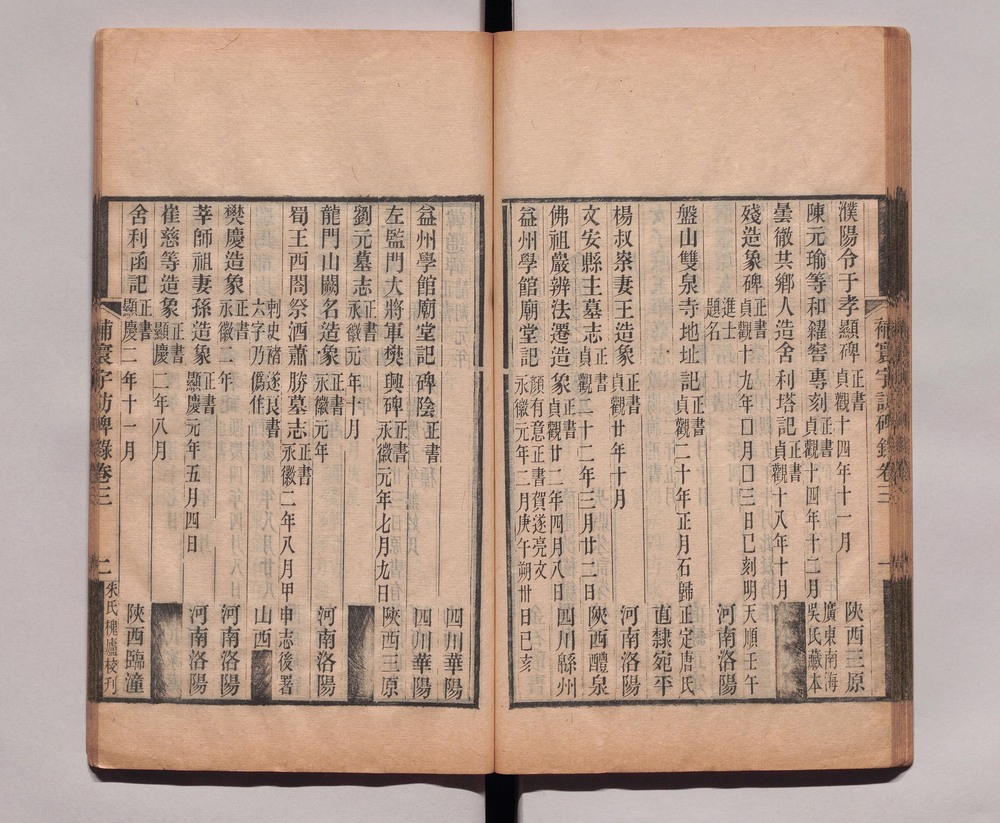 濮陽令于孝顯碑 正書 貞觀十四年十一月 陝西三原
陳元瑜等和糴窖專刻 正書 貞觀十四年十二月 廣東南海吳氏藏本
曇徹共鄉人造舍利塔記 正書 貞觀十八年十月
殘造象碑 正書 貞觀十九年囗月囗三日已刻明天順壬午進士題名 河南洛陽
盤山雙泉寺地址記 正書 貞觀二十年正月石歸正定唐氏 直隸宛平
楊叔寮妻王造象 正書 貞觀廿年十月 河南洛陽
文安縣主墓志 正書 貞觀二十二年三月廿二日 陝西醴泉
佛祖嚴辨法遷造象 正書 貞觀廿二年四月八日 四川緜州
益州學館廟堂記 顏有意正書賀遂亮文 永徽元年二月庚午朔廿日已亥
補寰宇訪碑錄卷三
益州學館廟堂記碑陰 正書 四川華陽
四川華陽
左監門大將軍樊興碑 正書 永徽元年七月九日 陝西三原
劉元墓志 正書 永徽元年十月
龍門山闕名造象 正書 永徽元年 河南洛陽
蜀王西閤祭酒蕭勝墓志 正書 永徽二年八月甲申志後署
刺史褚遂良書六字乃僞作 山西
樊慶造象 正書 永徽二年 河南洛陽
莘師祖妻孫造象 正書 顯慶元年五月四日 河南洛陽
崔慈等造象 正書 顯慶二年八月
舍利函記 正書 顯慶二年十一月 陝西臨潼
補寰宇訪碑錄卷三 二 朱氏槐廬校刊